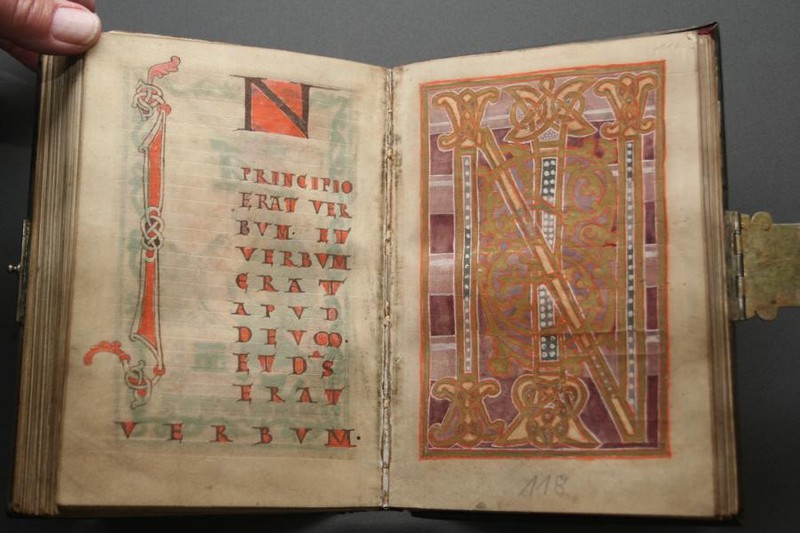 IN
PRINCIPIO
ERAT VER
BVM· ET
VERBVM
ERAT
APVD
DEVM·
ET D̄S
ERAT
VERBVM.
IN
118